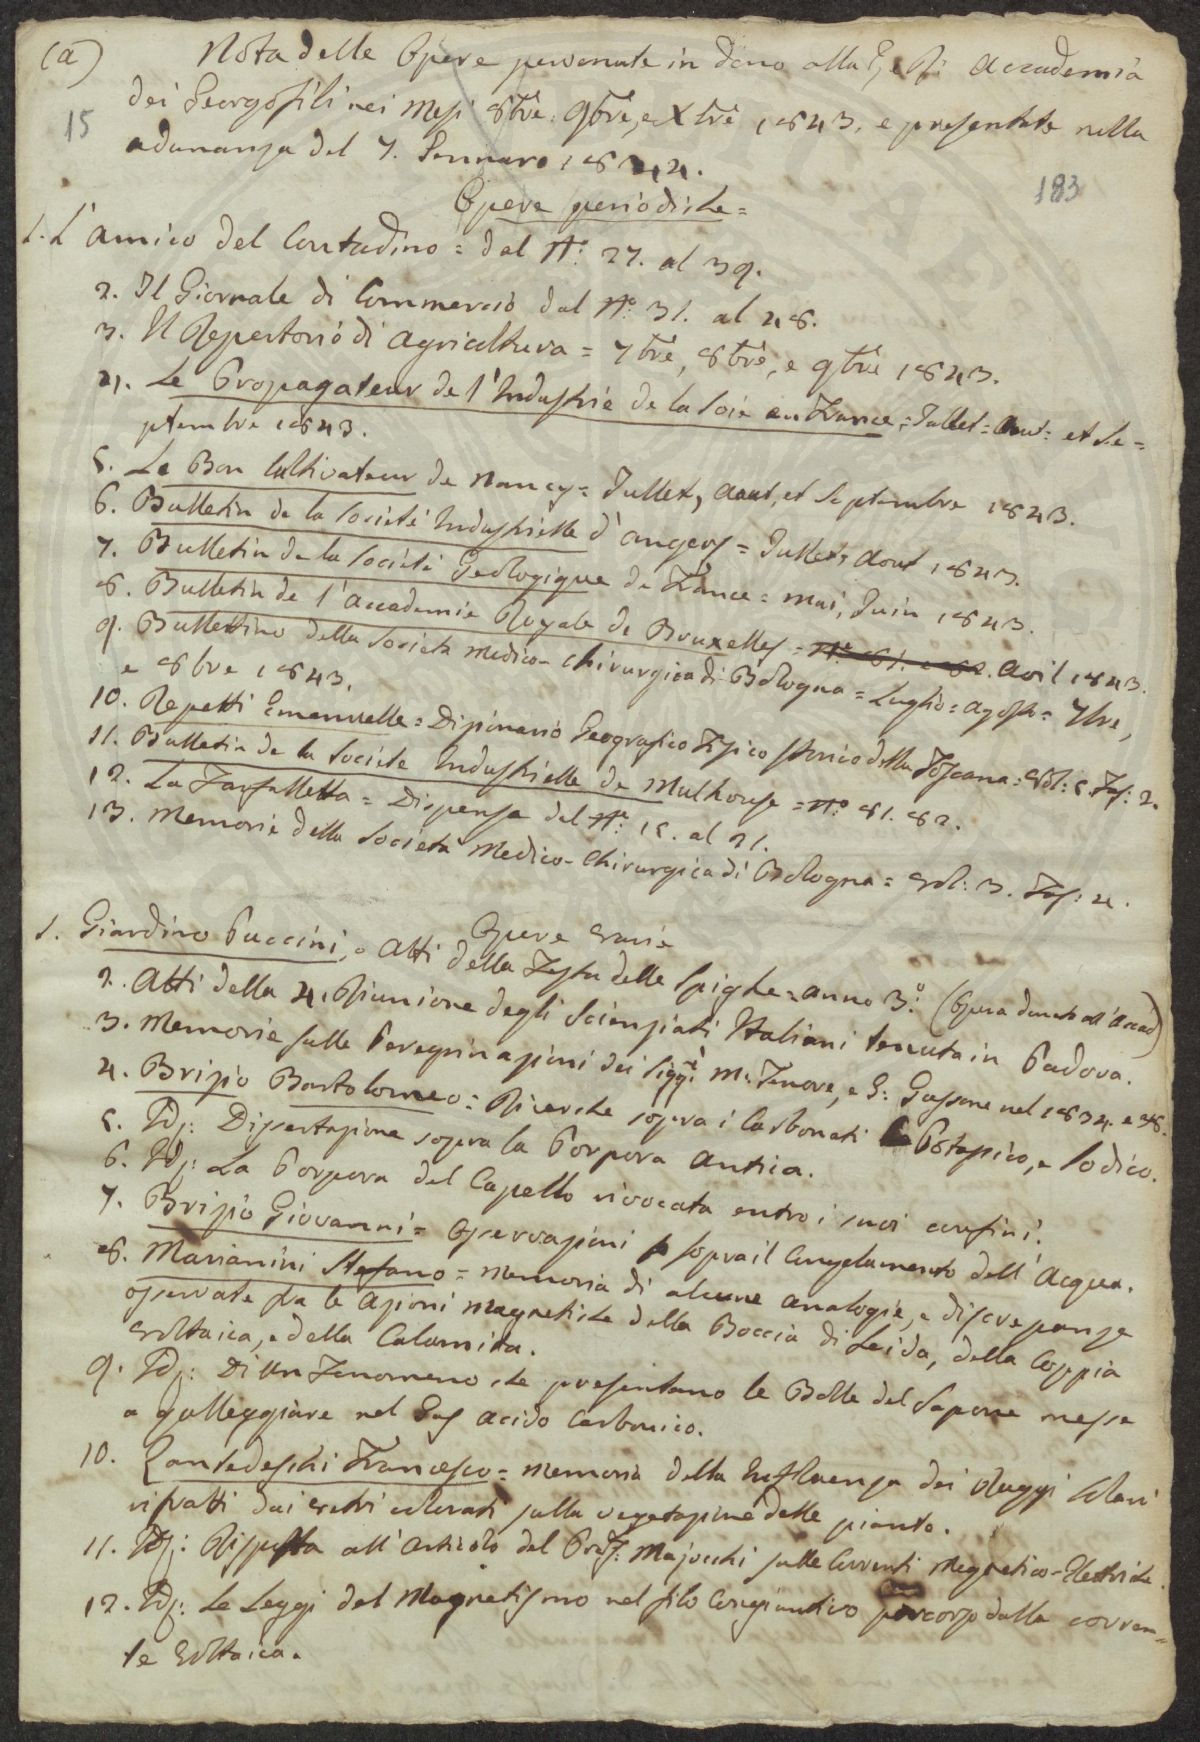 (a)
Nota delle Opere pervenute in dono alla I, e R: Accademia
dei Georgofili nei Mesi 8bre: 9bre, e Xbre 1843, e presentate nella
15
adunanza del 7. Gennaro 1844.
183
Opere periodiche =
1. L'amico del Contadino = dal N°: 27. al 39.
2. Il Giornale di Commercio dal N°: 31. al 48.
3. Il Repertorio di Agricoltura = 7bre, 8bre, e 9bre 1843.
4. Le Propagateur de l'Industrie de la Soie en France = Jullet = Aout = et Se=
ptembre 1843.
5. Le Bon Cultivateur de Nancy = Jullet, Aout, et Septembre 1843.
6. Bulletin de la Société Industrielle d'Angers = Jullet, Aout 1843.
7. Bulletin de la Société Geologique de France = Mai, Juin 1843.
8. Bulletin de l'Accademie Royale de Bruxelles = N°: 81. e 82. Avril 1843.
9. Bullettino della Società Medico-Chirurgica di Bologna = Luglio = Agosto = 7bre,
e 8bre 1843.
10. Repetti Emanuelle = Dizionario Geografico Fisico Storico della Toscana = Vol: 5. Fas: 2.
11. Bulletin de la Societe Industrielle de Mulhouse = N°: 81. 82.
12. La Farfalletta = Dispensa dal N°: 15. al 21.
13. Memorie della Società Medico-Chirurgica di Bologna = Vol: 3. Fas: 4.
Opere Varie
1. Giardino Puccini, = Atti della Festa delle Spighe = anno 3.° (Opera donata all'Accad)
2. Atti della 4. Riunione degli Scienziati Italiani tenuta in Padova.
3. Memorie sulle Peregrinazioni dei Sigg:ri M: Tenore, e G: Gussone nel 1834. e 38.
4. Brizio Bartolomeo = Ricerche sopra i Carbonati Potassico, e Sodico.
5. Id: Dissertazione sopra la Porpora Antica.
6. Id: La Porpora del Capello rivocata entro i suoi confini.
7. Brizio Giovanni = Osservazioni sopra il Congelamento dell'Acqua.
8. Marianini Stefano = Memoria di alcune analogie, e discrepanze
osservate fra le Azioni Magnetiche della Boccia di Leida, della Coppia
Voltaica, e della Calamita.
9. Id: Di un Fenomeno che presentano le Bolle del Sapone messe
a galleggiare nel Gas acido Carbonico.
10. Zantedeschi Francesco = Memoria della Influenza dei Raggi Solari
rifratti dai Vetri colorati sulla vegetazione delle piante.
11. Id: Risposta all'Articolo del Prof: Majocchi sulle Correnti Magnetico-Elettriche.
12. Id: Le Leggi del Magnetismo nel filo Congiuntivo percorso dalla corren=
te Voltaica.